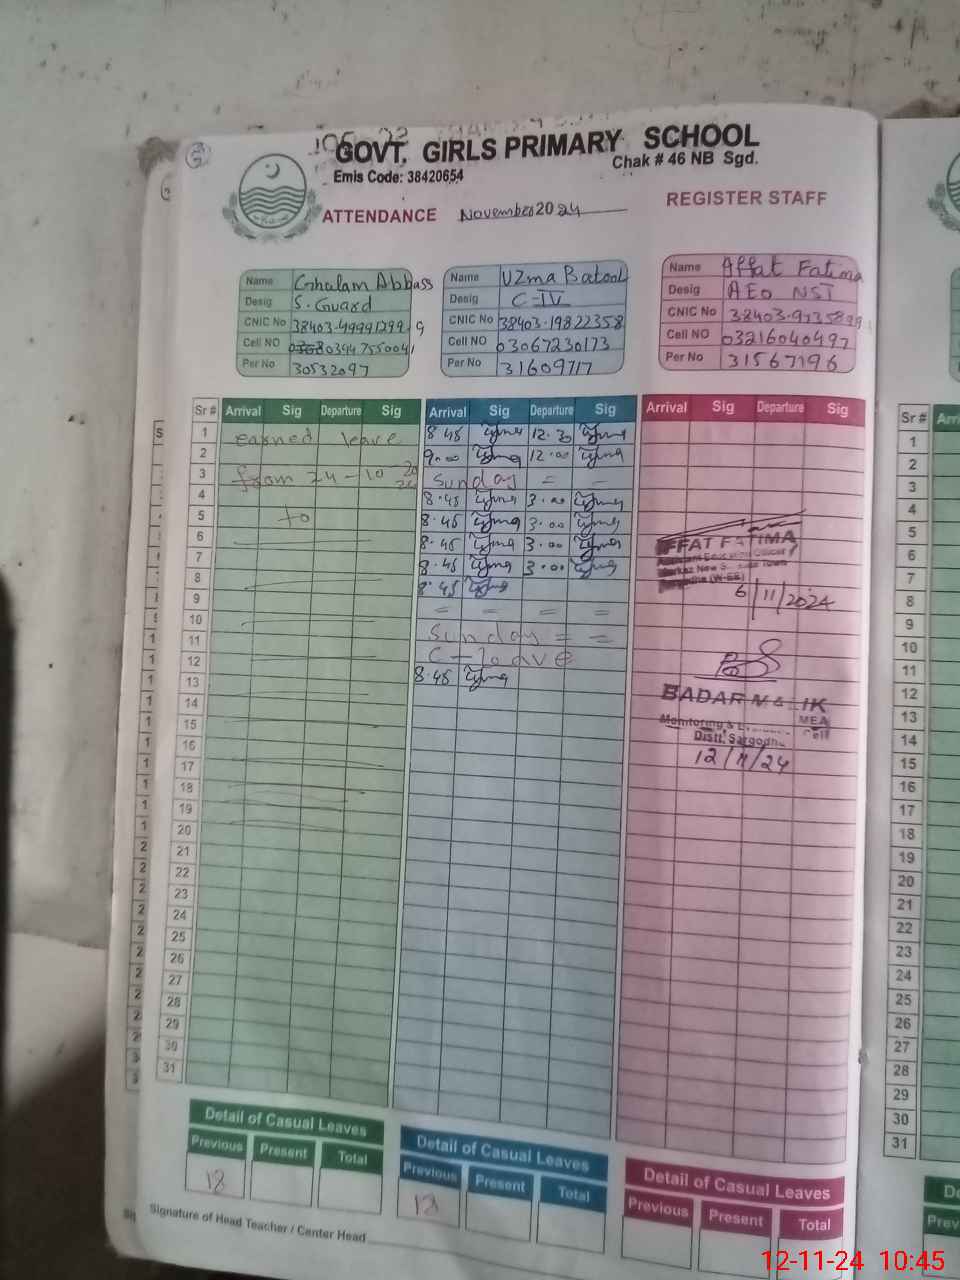 GOVT. GIRLS PRIMARY SCHOOL
Chak # 46 NB Sgd.
Emis Code: 38420654
ATTENDANCE November 2024 REGISTER STAFF
Name Ghulam Abbass
Desig S. Guard
CNIC No 38403-49991299-9
Cell NO 03447550041
Per No 30532097
Name Uzma Batool
Desig C-IV
CNIC No 38403-19822358
Cell NO 03067230173
Per No 31609717
Name Affat Fatima
Desig AEO NST
CNIC No
Cell NO 03216040497
Per No 31567196
Sr # Arrival Sig Departure Sig Arrival Sig Departure Sig Arrival Sig Departure Sig
1 earned leave 8.45 12.30
2 9.00 12.00
3 from 24-10 2024 Sunday = -
4 8.45 3.00
5 to 8.45 3.00
6 8.45 3.00
7 8.45 3.00
8 8.45
9 = = = =
10 Sunday = =
11 C-leave
12 8.45
13
14
15
16
17
18
19
20
21
22
23
24
25
26
27
28
29
30
31
IFFAT FATIMA
6/11/2024
BADAR MALIK
MEA
Distt. Sargodha
12/11/24
Detail of Casual Leaves
Previous Present Total
18
Detail of Casual Leaves
Previous Present Total
12
Detail of Casual Leaves
Previous Present Total
Signature of Head Teacher / Center Head
Sr #
1
2
3
4
5
6
7
8
9
10
11
12
13
14
15
16
17
18
19
20
21
22
23
24
25
26
27
28
29
30
31
12-11-24 10:45